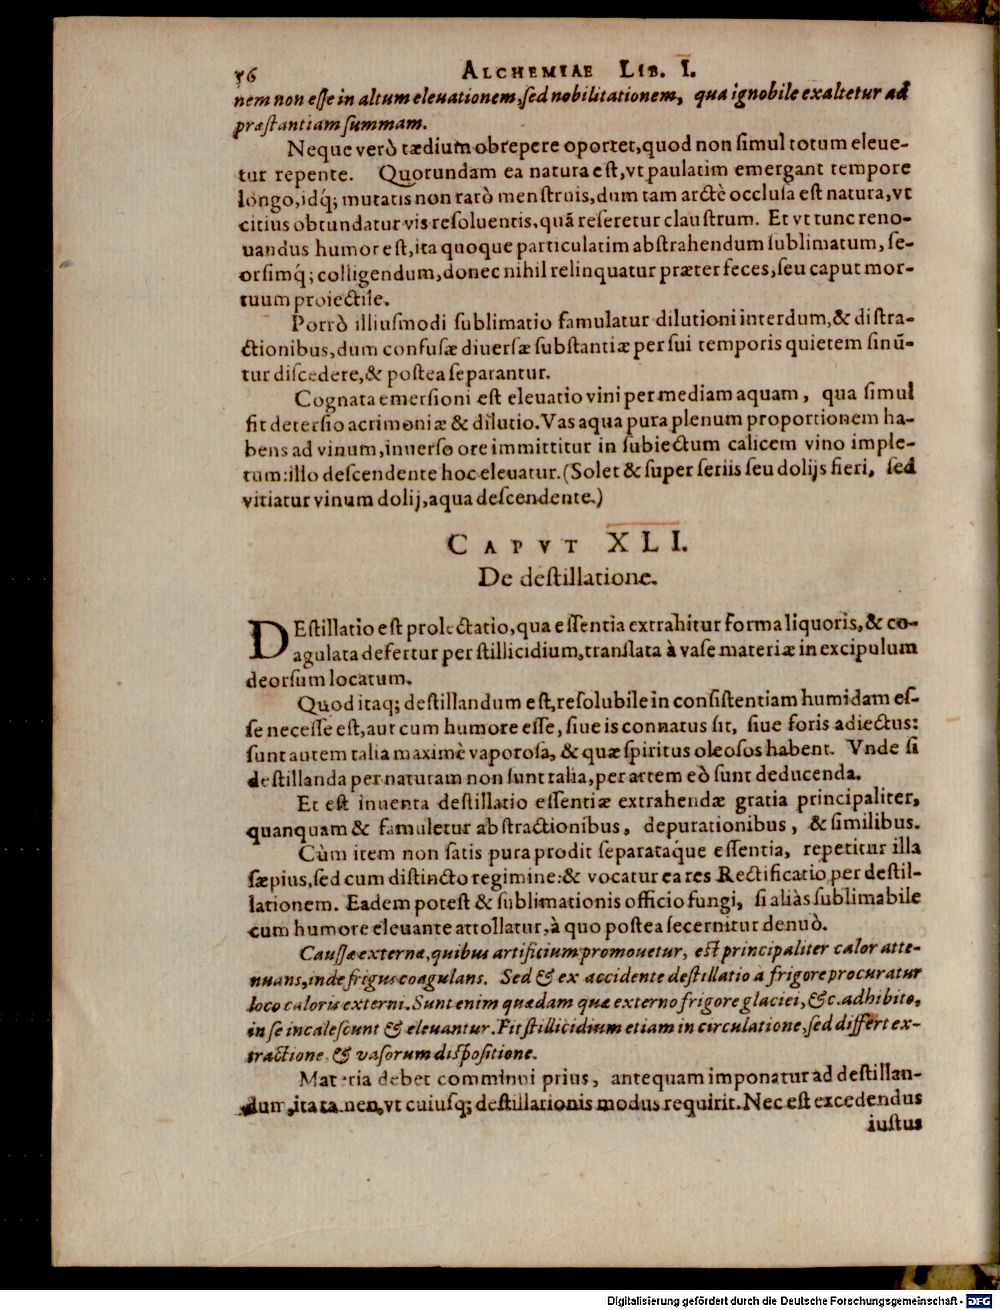 56 ALCHEMIAE LIB. I.
nem non eſſe in altum eleuationem, ſed nobilitationem, qua ignobile exaltetur ad
præſtantiam ſummam.
Neque verò tædium obrepere oportet, quod non ſimul totum eleue-
tur repente. Quorundam ea natura eſt, vt paulatim emergant tempore
longo, idq́; mutatis non rarò menſtruis, dum tam arctè occluſa eſt natura, vt
citius obtundatur vis reſoluentis, quã reſeretur clauſtrum. Et vt tunc reno-
uandus humor eſt, ita quoque particulatim abſtrahendum ſublimatum, ſe-
orſimq́; colligendum, donec nihil relinquatur præter feces, ſeu caput mor-
tuum proiectile.
Porrò illiuſmodi ſublimatio famulatur dilutioni interdum, & diſtra-
ctionibus, dum confuſæ diuerſæ ſubſtantiæ per ſui temporis quietem ſinũ-
tur diſcedere, & poſtea ſeparantur.
Cognata emerſioni eſt eleuatio vini per mediam aquam, qua ſimul
fit deterſio acrimoniæ & dilutio. Vas aqua pura plenum proportionem ha-
bens ad vinum, inuerſo ore immittitur in ſubiectum calicem vino imple-
tum: illo deſcendente hoc eleuatur. (Solet & ſuper ſeriis ſeu dolijs fieri, ſed
vitiatur vinum dolij, aqua deſcendente.)
CAPVT XLI.
De deſtillatione.
DEſtillatio eſt prolectatio, qua eſſentia extrahitur forma liquoris, & co-
agulata defertur per ſtillicidium, tranſlata à vaſe materiæ in excipulum
deorſum locatum.
Quod itaq; deſtillandum eſt, reſolubile in conſiſtentiam humidam eſ-
ſe neceſſe eſt, aut cum humore eſſe, ſiue is connatus ſit, ſiue foris adiectus:
ſunt autem talia maximè vaporoſa, & quæ ſpiritus oleoſos habent. Vnde ſi
deſtillanda per naturam non ſunt talia, per artem eò ſunt deducenda.
Et eſt inuenta deſtillatio eſſentiæ extrahendæ gratia principaliter,
quanquam & famuletur abſtractionibus, depurationibus, & ſimilibus.
Cùm item non ſatis pura prodit ſeparataq́ue eſſentia, repetitur illa
ſæpius, ſed cum diſtincto regimine: & vocatur ea res Rectificatio per deſtil-
lationem. Eadem poteſt & ſublimationis officio fungi, ſi aliàs ſublimabile
cum humore eleuante attollatur, à quo poſtea ſecernitur denuò.
Cauſſæ externæ, quibus artificium promouetur, eſt principaliter calor atte-
nuans, inde frigus coagulans. Sed & ex accidente deſtillatio à frigore procuratur
loco caloris externi. Sunt enim quædam quæ externo frigore glaciei, &c. adhibito,
in ſe incaleſcunt & eleuantur. Fit ſtillicidium etiam in circulatione, ſed differt ex-
tractione & vaſorum diſpoſitione.
Materia debet comminui prius, antequam imponatur ad deſtillan-
dum, ita tamen, vt cuiuſq; deſtillationis modus requirit. Nec eſt excedendus
iuſtus
Digitalisierung gefördert durch die Deutsche Forschungsgemeinschaft - DFG